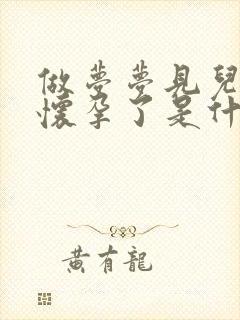 做夢夢見兒
懷孕了是什
黃有龍